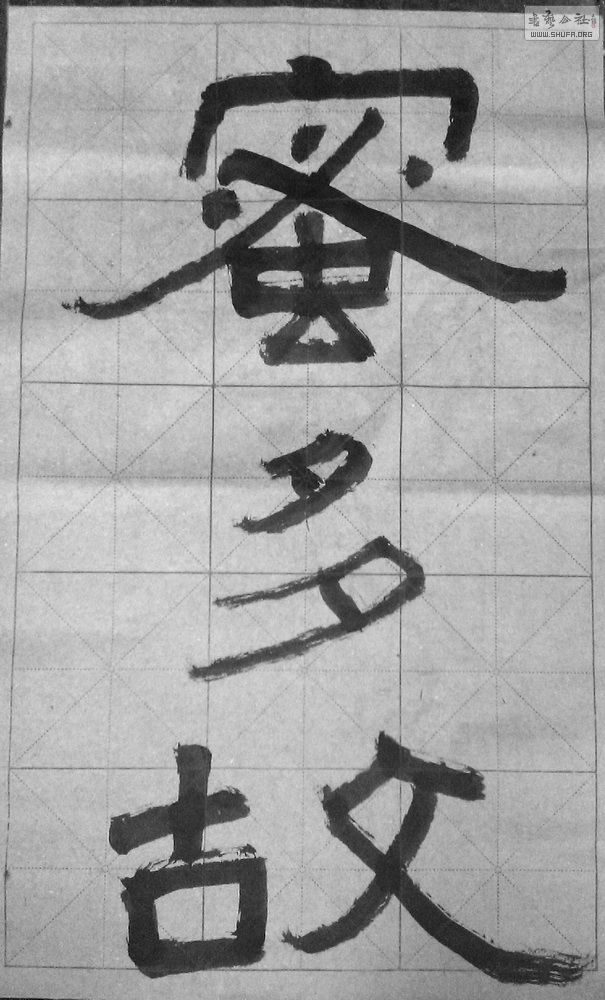 蜜多故
書藝公社
WWW.SHUFA.ORG